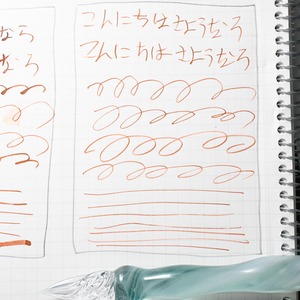 なら
こんにちは さようなら
なら
こんにちは さようなら